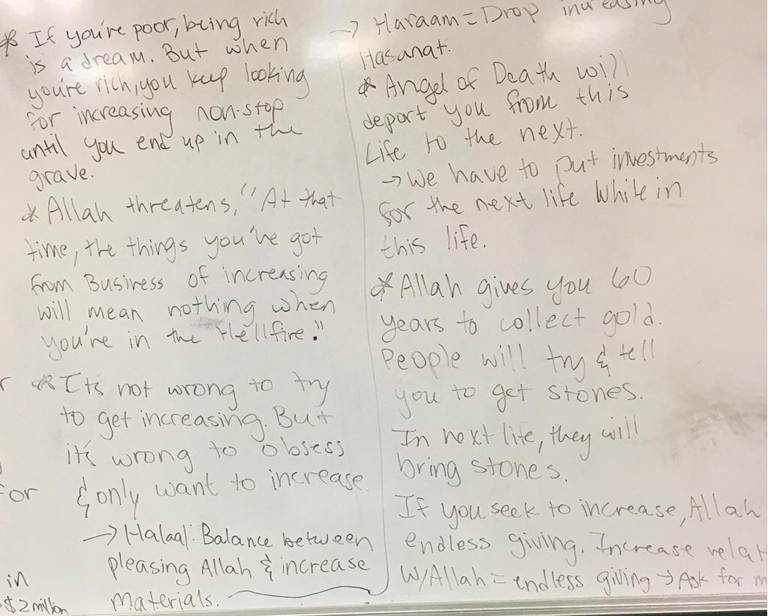 * If you're poor, being rich
is a dream. But when
you're rich, you keep looking
for increasing non-stop
until you end up in the
grave.
* Allah threatens, "At that
time, the things you've got
from Business of increasing
will mean nothing when
you're in the Hellfire."
r * It's not wrong to try
to get increasing. But
it's wrong to obsess
for & only want to increase
→ Halaal: Balance between
pleasing Allah & increase
in materials.
$2 million
→ Haraam = Drop increasing
Hasanat.
* Angel of Death will
deport you from this
Life to the next.
→ We have to put investments
for the next life while in
this life.
* Allah gives you 60
years to collect gold.
People will try & tell
you to get stones.
In next life, they will
bring stones.
If you seek to increase, Allah
endless giving. Increase relat
w/Allah = endless giving → Ask for m